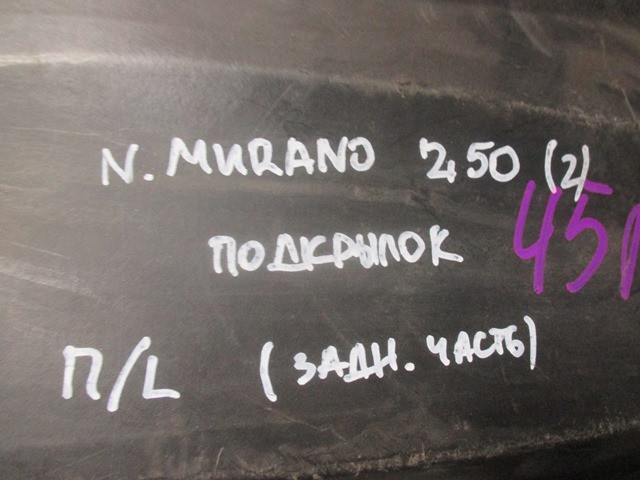 N. MURANO Z50 (2)
45
ПОДКРЫЛОК
П/L (ЗАДН. ЧАСТЬ)